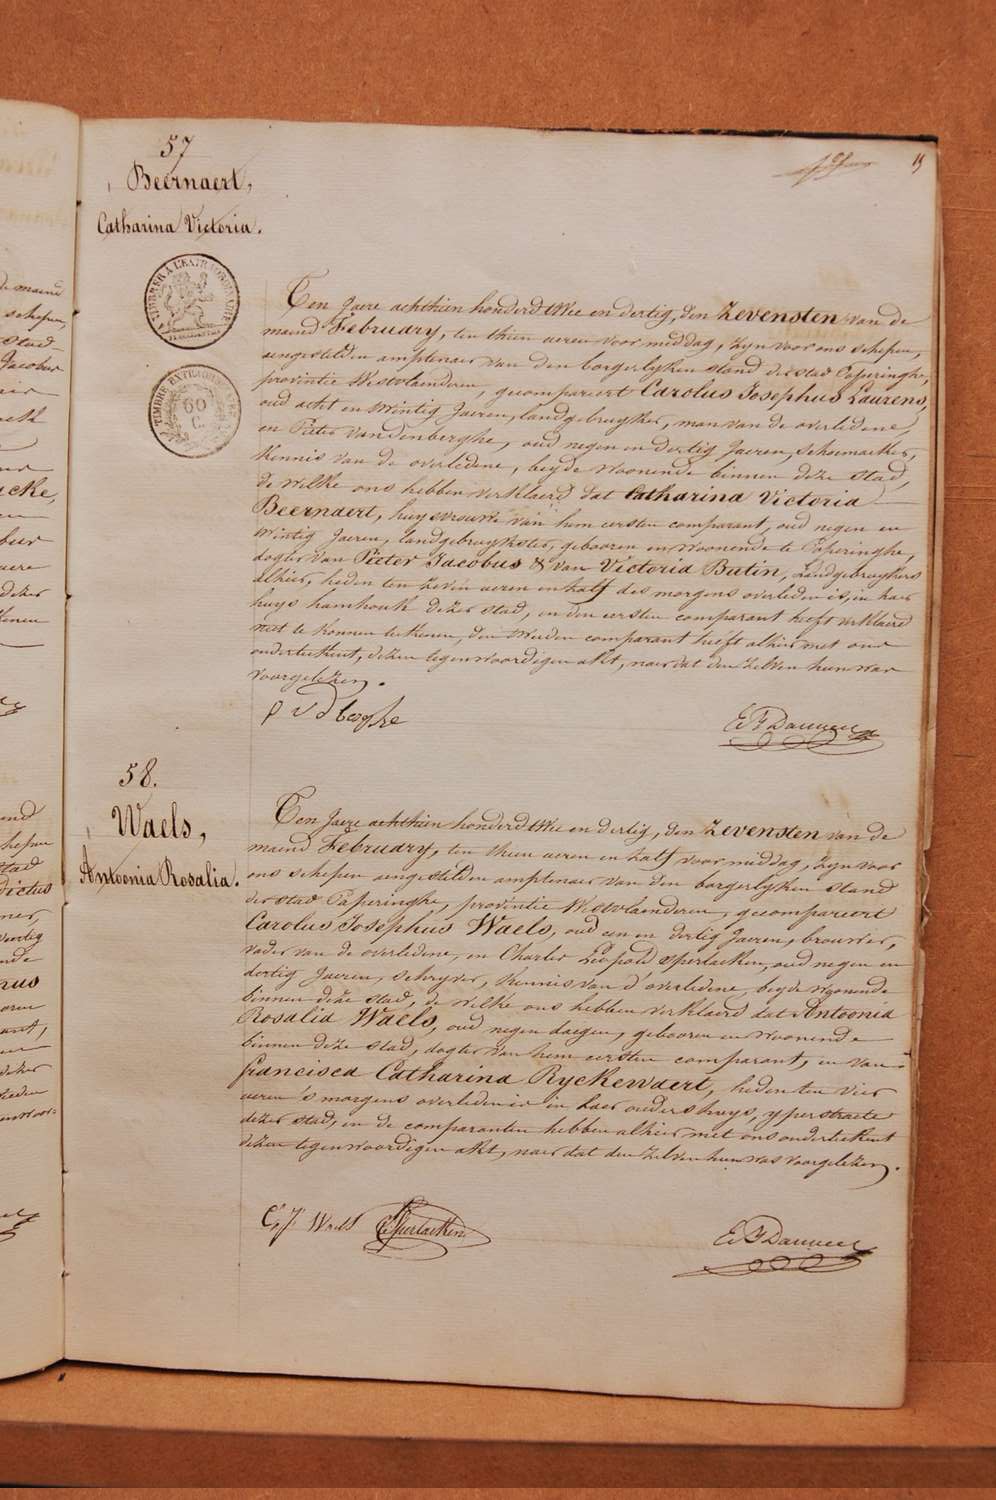 57
Beernaert,
Catharina Victoria.
15
A TIMBRER A L'EXTRAORDINAIRE
TIMBRE EXTRAORD
60
C
Ten Jaere achthien honderd twee en dertig, den Zevensten van de
maend February, ten thien ueren voor middag, zyn voor ons schepen,
aengestelden amptenaer van den borgerlyken stand der stad Poperinghe,
provintie Westvlaenderen, gecompareert Carolus Josephus Laurens,
oud acht en twintig Jaeren, landgebruyker, man van de overledene,
en Pieter Vandenberghe, oud negen en dertig Jaeren, schoemaeker,
Kennis van de overledene, beyde woonende binnen deze stad,
de welke ons hebben verklaerd dat Catharina Victoria
Beernaert, huysvrouwe van hem eersten comparant, oud negen en
twintig Jaeren, landgebruykster, gebooren en woonende te Poperinghe,
dogter van Pieter Jacobus & van Victoria Butin, Landgebruykers
alhier, heden ten zeven ueren en half des morgens overleden is, in haer
huys hamhouk dezer stad, en den eersten comparant heeft verklaerd
niet te konnen teekenen, den tweeden comparant heeft alhier met ons
onderteekent, dezen tegenwoordigen akt, naer dat den zelven hun was
voorgelezen.
P v d berghe
58.
Waels,
Antoonia Rosalia.
Ten Jaere achthien honderd twee en dertig, den Zevensten van de
maend February, ten thien ueren en half voor middag, zyn voor
ons schepen aengestelden amptenaer van den borgerlyken stand
der stad Poperinghe, provintie Westvlaenderen, gecompareert
Carolus Josephus Waels, oud een en dertig Jaeren, brouwer,
vader van de overledene, en Charles Léopold Sperlaeken, oud negen en
dertig Jaeren, schryver, Kennis van d'overledene, beyde woonende
binnen deze stad, de welke ons hebben verklaerd dat Antoonia
Rosalia Waels, oud negen daegen, gebooren en woonende
binnen deze stad, dogter van hem eersten comparant, en van
francisca Catharina Ryckewaert, heden ten vier
ueren 's morgens overleden is in haer ouders huys, yperstraete
dezer stad, en de comparanten hebben alhier met ons onderteekent
dezen tegenwoordigen akt, naer dat den zelven hun was voorgelezen.
C, J Waels